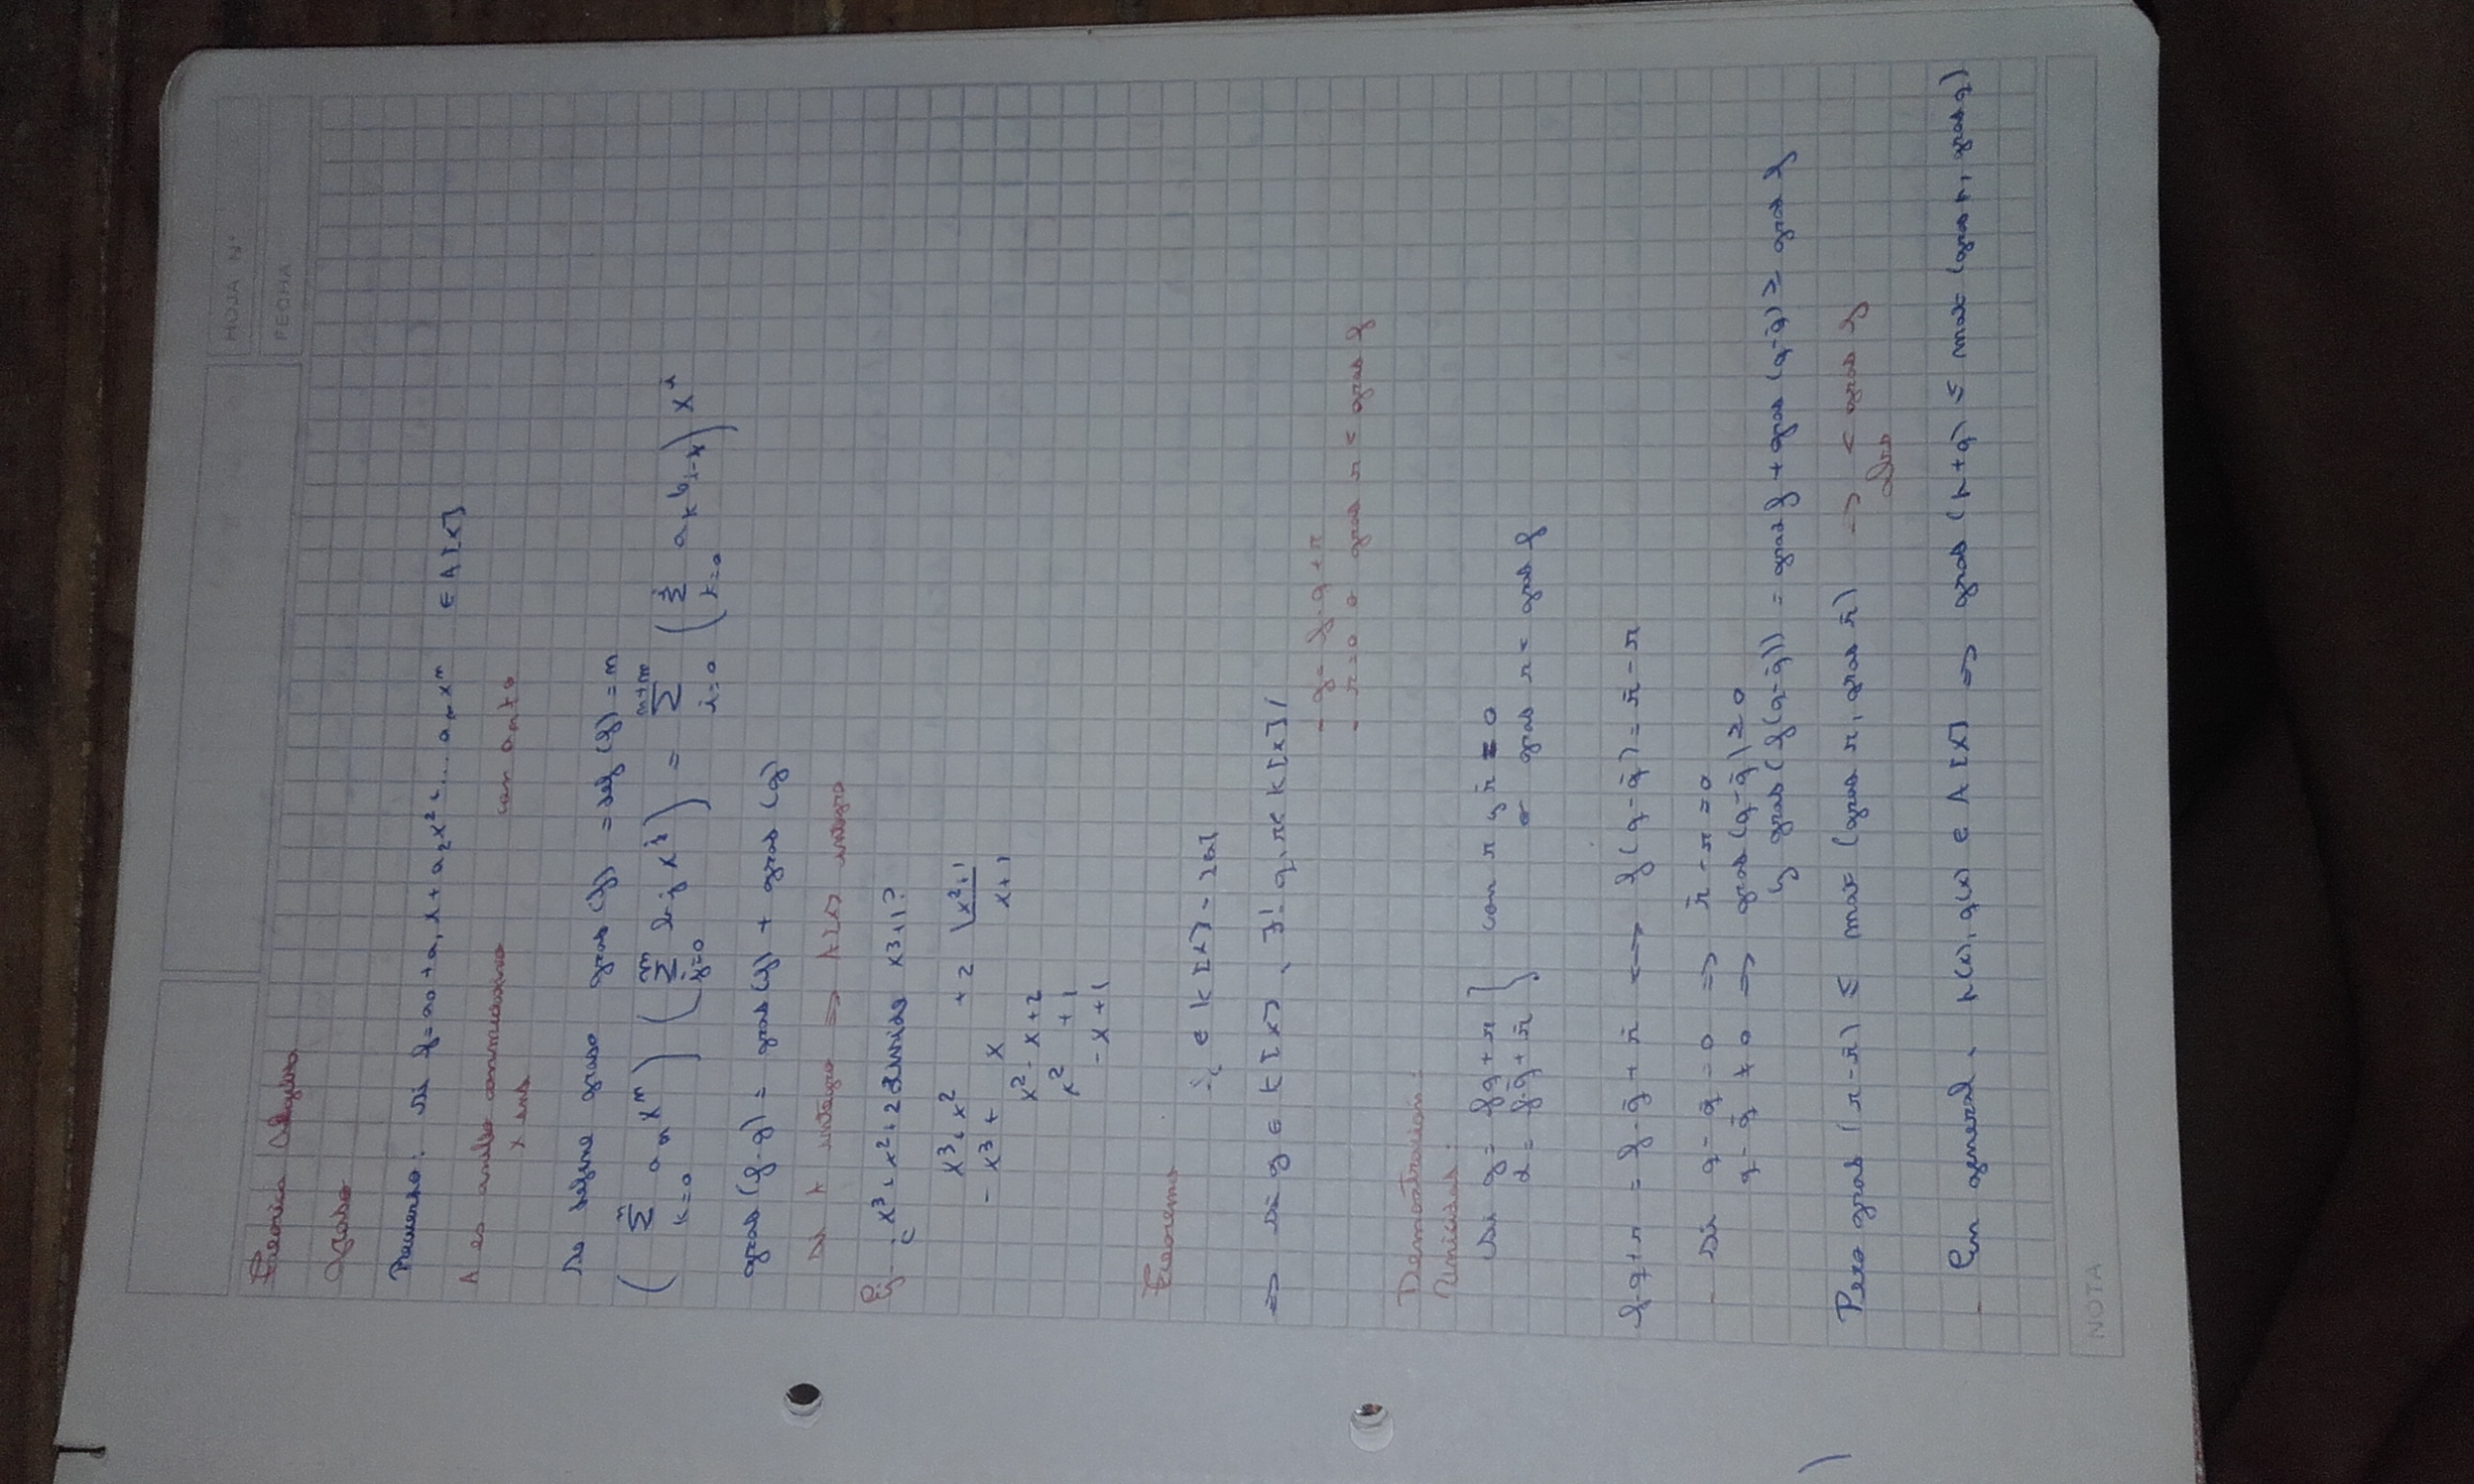 HOJA Nº
FECHA
Teorica Algebra
Grado
Recuerdo: Si f = a0 + a1 x + a2 x² + ... an x^n ∈ A[x]
A es anillo conmutativo con an ≠ 0
Se define grado grad (f) = def (f) = n
( Σ_{k=0}^{n} a_n x^n ) ( Σ_{j=0}^{m} b_j x^j ) = Σ_{i=0}^{n+m} ( Σ_{k=0}^{i} a_k b_{i-k} ) x^i
grad (f·g) = grad (f) + grad (g)
Si A integro ⇒ A[x] integro
Ej: ¿ x³ + x² + 2 divide x³+1?
x³ + x² + 2 | x²+1
- x³ + x x+1
x² - x + 2
x² + 1
- x + 1
Teorema
∈ K[x] - {0}
⇒ Si g ∈ K[x], ∃! q, r ∈ K[x] /
- g = f·q + r
- r = 0 o grad r < grad f
Demostracion:
Unicidad:
Si g = fq + r } con r y r̄ = 0
= f·q̄ + r̄ } o grad r < grad f
f·q + r = f·q̄ + r̄ ⟷ f(q - q̄) = r̄ - r
- Si q - q̄ = 0 ⇒ r̄ - r = 0
q - q̄ ≠ 0 ⇒ grad (q - q̄) ≥ 0
y grad (f(q-q̄)) = grad f + grad (q-q̄) ≥ grad f
Pero grad (r - r̄) ≤ max (grad r, grad r̄) → < grad f
Abs
- En general, p(x), q(x) ∈ A[x] ⇒ grad (p+q) ≤ max (grad p, grad q)
NOTA